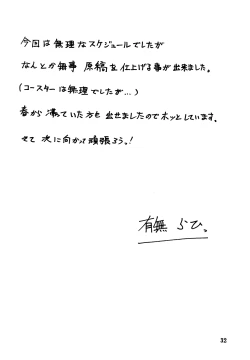 今回は無理なスケジュールでしたが
なんとか無事 原稿を仕上げる事が出来ました。
(コースターは無理でしたが…)
春から 滞っていた方も 出せましたのでホッとしています。
さて 次に向かって頑張ろう。!
有無 らひ。
32